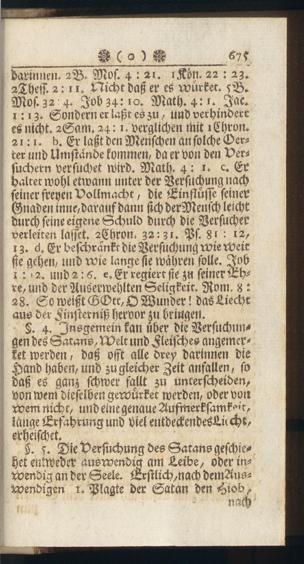 ❋ ( 0 ) ❋ 675
darinnen. 2B. Mos. 4 : 21. 1Kön. 22 : 23.
2Thess. 2 : 11. Nicht daß er es würket. 5B.
Mos. 32 4. Job 34: 10. Math. 4: 1. Jac.
1 : 13. Sondern er laßt es zu, und verhindert
es nicht. 2Sam. 24: 1. verglichen mit 1Chron.
21: 1. b. Er laßt den Menschen an solche Oer-
ter und Umstände kommen, da er von den Ver-
suchern versuchet wird. Math. 4: 1. c. Er
haltet wohl etwann unter der Versuchung nach
seiner freyen Vollmacht, die Einflüsse seiner
Gnaden inne, darauf dann sich der Mensch leicht
durch seine eigene Schuld durch die Versucher
verleiten lasset. 2Chron. 32: 31. Ps. 81: 12,
13. d, Er beschränkt die Versuchung wie weit
sie gehen, und wie lange sie währen solle. Job
1: 12. und 2: 6. e. Er regiert sie zu seiner Eh-
re, und der Auserwehlten Seligkeit. Rom. 8:
28. So weißt GOtt, O Wunder! das Liecht
aus der Finsterniß hervor zu bringen.
§. 4. Insgemein kan über die Versuchun-
gen des Satans, Welt und Fleisches angemer-
ket werden, daß offt alle drey darinnen die
Hand haben, und zu gleicher Zeit anfallen, so
daß es ganz schwer fallt zu unterscheiden,
von wem dieselben gewürket werden, oder von
wem nicht, und eine genaue Aufmerksamkeit,
lange Erfahrung und viel entdeckendes Liecht,
erheischet.
§. 5. Die Versuchung des Satans geschie-
het entweder auswendig am Leibe, oder in-
wendig an der Seele. Erstlich, nach dem Aus-
wendigen 1. Plagte der Satan den Hiob,
nach